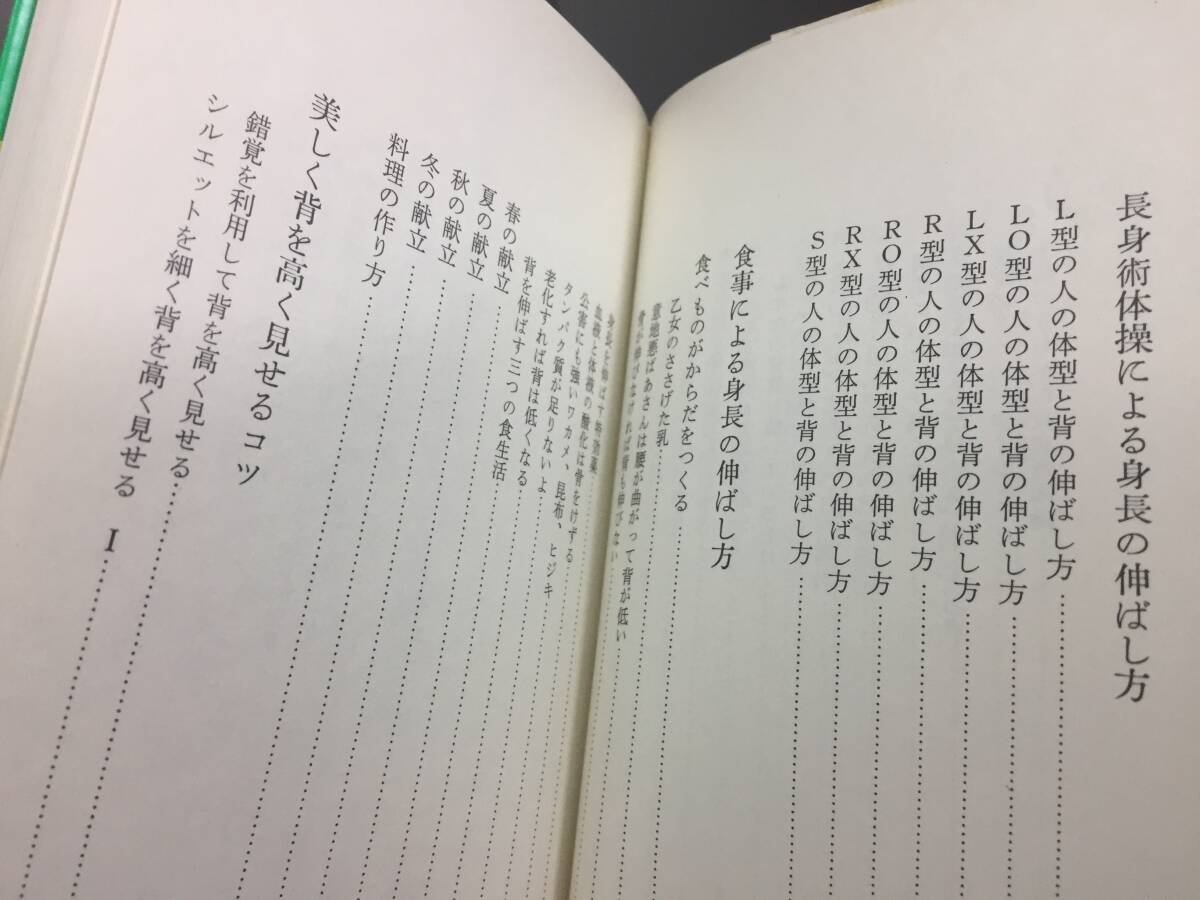 長身術体操による身長の伸ばし方
L型の人の体型と背の伸ばし方
LO型の人の体型と背の伸ばし方
LX型の人の体型と背の伸ばし方
R型の人の体型と背の伸ばし方
RO型の人の体型と背の伸ばし方
RX型の人の体型と背の伸ばし方
S型の人の体型と背の伸ばし方
食事による身長の伸ばし方
食べものがからだをつくる
乙女のささげた乳
意地悪ばあさんは腰が曲がって背が低い
骨が伸びなければ背も伸びない
身長を伸ばす特効薬
血液と体液の酸化は骨をけずる
公害にも強いワカメ、昆布、ヒジキ
タンパク質が足りないよ
老化すれば背は低くなる
背を伸ばす三つの食生活
春の献立
夏の献立
秋の献立
冬の献立
料理の作り方
美しく背を高く見せるコツ
錯覚を利用して背を高く見せる
シルエットを細く背を高く見せる I